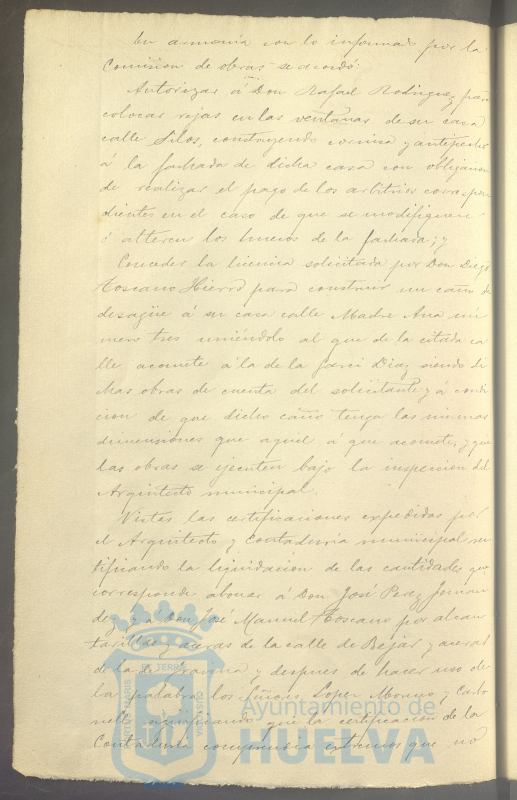 En armonía con lo informado por la
Comision de obras se acordó:
Autorizar á Don Rafael Rodriguez para
colocar rejas en las ventanas de su casa
calle Silos, construyendo cornisa y antepechos
á la fachada de dicha casa con obligacion
de realizar el pago de los arbitrios correspon
dientes en el caso de que se modifiquen
ó alteren los huecos de la fachada; y
Conceder la licencia solicitada por Don Diego
Toscano Hierro para construir un caño de
desagüe á su casa calle Madre Ana nú
mero tres uniéndolo al que de la citada ca
lle acomete á la de Garci Diaz siendo di
chas obras de cuenta del solicitante y á condi
cion de que dicho caño tenga las mismas
dimensiones que aquel á que acomete, y que
las obras se ejecuten bajo la inspeccion del
Arquitecto municipal.
Vistas las certificaciones expedidas por
el Arquitecto y Contaduría municipal
tificando la liquidacion de las cantidades que
corresponde abonar á Don José Perez
dez y á Don José Manuel Toscano por alcan
tarillas y aceras de la calle de Béjar y aceras
de la de y despues de hacer uso de
la palabra los Señores Lopez Moreno y
significando que la certificacion de la
Contaduría comprendia extremos que no
PORTUS MARIS
ET TERRE
CUSTODIA
Ayuntamiento de
HUELVA